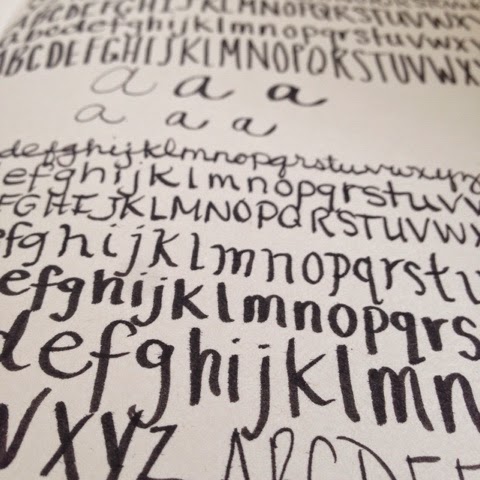 abcdefghijklmnopqrstuvwxy
ABCDEFGHIJKLMNOPQRSTUVWX
a a a
a a a
defghijklmnopqrstuvwxyz
efghijklmnopqrstuv
FGHIJKLMNOPQRSTUVWX
efghijklmnopqrstu
efghijklmnopqrs
defghijklmn
xyz ABCDE